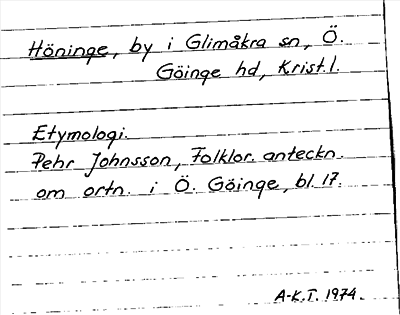 Höninge, by i Glimåkra sn, Ö.
Göinge hd, Krist.l.
Etymologi.
Pehr Johnsson, Folklor. anteckn.
om ortn. i Ö. Göinge, bl. 17.
A-K.T. 1974.